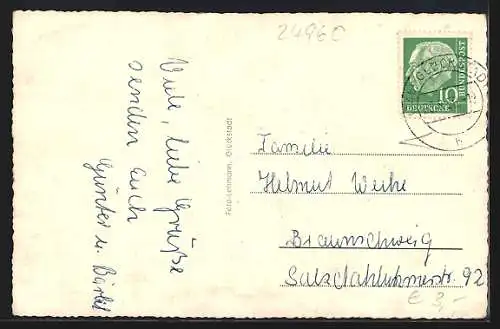 2496C
Viele, liebe Grüße
senden Euch
Günter u. Bärbel
Foto-Lehmann, Glückstadt
DEUTSCHE
BUNDESPOST
10
Familie
Helmut Weihe
Braunschweig
Salzdahlumerstr. 92
€ 3,-